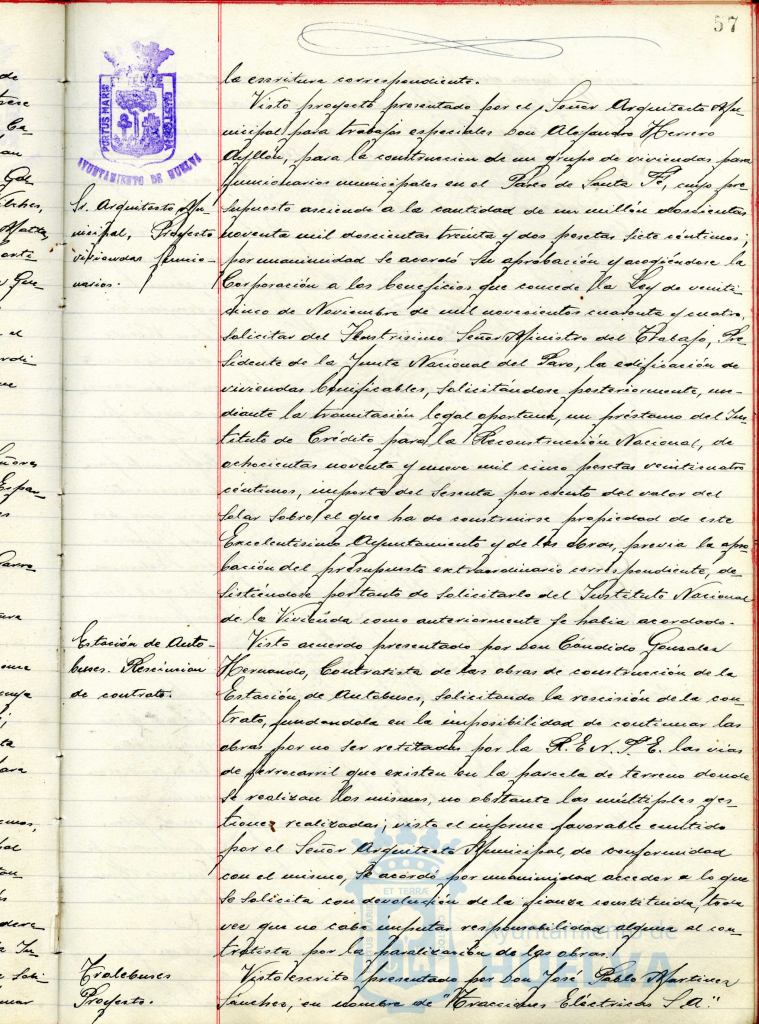 57
PORTUS MARIS
AYUNTAMIENTO DE HUELVA
la escritura correspondiente.
Visto proyecto presentado por el Señor Arquitecto Mu-
nicipal para trabajos especiales Don Alejandro Herrero
Ayllón, para la construccion de un grupo de viviendas para
funcionarios municipales en el Paseo de Santa Fe, cuyo pre-
Sr. Arquitecto Mu-
nicipal, Proyecto
viviendas funcio-
narios.
supuesto asciende a la cantidad de un millón doscientas
noventa mil doscientas treinta y dos pesetas siete céntimos;
por unanimidad se acordó su aprobación y acogiéndose la
Corporación a los beneficios que concede la Ley de veinti-
cinco de Noviembre de mil novecientos cuarenta y cuatro,
solicitar del Ilustrisimo Señor Ministro del Trabajo, Pre-
sidente de la Junta Nacional del Paro, la edificación de
viviendas bonificables, solicitándose posteriormente, me-
diante la tramitación legal oportuna, un préstamo del Ins-
tituto de Crédito para la Reconstrucción Nacional, de
ochocientas noventa y nueve mil cinco pesetas veinticuatro
céntimos, importe del sesenta por ciento del valor del
solar sobre el que ha de construirse propiedad de este
Excelentísimo Ayuntamiento y de las obras, previa la apro-
bación del presupuesto extraordinario correspondiente, de-
sistiéndose por tanto de solicitarlo del Instituto Nacional
de la Vivienda como anteriormente se habia acordado.
Estación de Auto-
buses. Rescision
de contrato.
Visto acuerdo presentado por Don Cándido Gonzalez
Hernando, Contratista de las obras de construcción de la
Estación de Autobuses, solicitando la rescisión de la con-
trato, fundandola en la imposibilidad de continuar las
obras por no ser retiradas por la R.E.N.F.E. las vias
de ferrocarril que existen en la parcela de terreno donde
se realizan los mismos, no obstante las múltiples ges-
tiones realizadas; visto el informe favorable emitido
por el Señor Arquitecto Municipal, de conformidad
con el mismo, se acordó por unanimidad acceder a lo que
se solicita con devolución de la fianza constituida, toda
vez que no cabe imputar responsabilidad alguna al con-
tratista por la paralización de las obras.
Trolebuses
Proyecto.
Visto escrito presentado por Don José Pablo Martinez
Sánchez, en nombre de "Tracciones Eléctricas S.A."
Ayuntamiento de
HUELVA